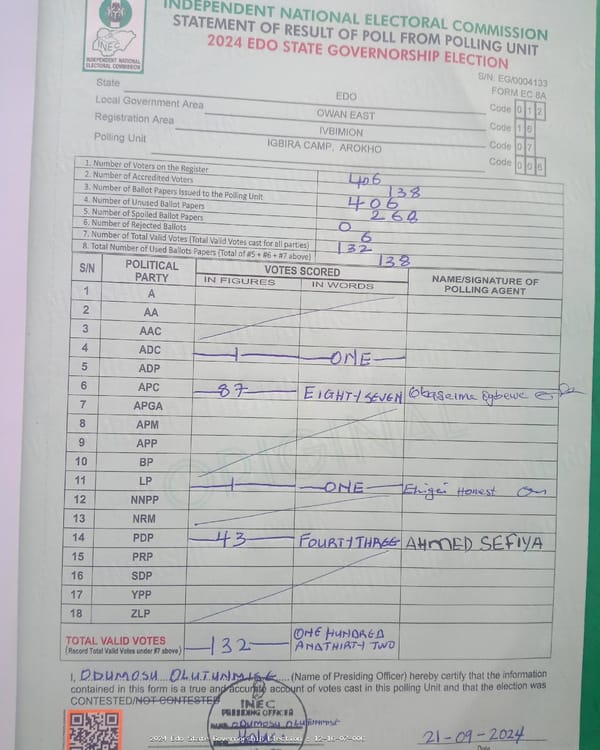 INDEPENDENT NATIONAL ELECTORAL COMMISSION
STATEMENT OF RESULT OF POLL FROM POLLING UNIT
2024 EDO STATE GOVERNORSHIP ELECTION
INEC
INDEPENDENT NATIONAL
ELECTORAL COMMISSION
S/N. EG/0004133
FORM EC 8A
State EDO Code 0 1 2
Local Government Area OWAN EAST Code 1 6
Registration Area IVBIMION Code 0 7
Polling Unit IGBIRA CAMP, AROKHO Code 0 0 6
1. Number of Voters on the Register 406
2. Number of Accredited Voters 138
3. Number of Ballot Papers Issued to the Polling Unit 406
4. Number of Unused Ballot Papers 268
5. Number of Spoiled Ballot Papers 0
6. Number of Rejected Ballots 6
7. Number of Total Valid Votes (Total Valid Votes cast for all parties) 132
8. Total Number of Used Ballots Papers (Total of #5 + #6 + #7 above) 138
S/N POLITICAL PARTY VOTES SCORED NAME/SIGNATURE OF POLLING AGENT
IN FIGURES IN WORDS
1 A
2 AA
3 AAC
4 ADC 1 ONE
5 ADP
6 APC 87 EIGHTY SEVEN
7 APGA
8 APM
9 APP
10 BP
11 LP 1 ONE Honest
12 NNPP
13 NRM
14 PDP 43 FOURTY THREE AHMED SEFIYA
15 PRP
16 SDP
17 YPP
18 ZLP
ORIGINAL
TOTAL VALID VOTES 132 ONE HUNDRED
(Record Total Valid Votes under #7 above) AND THIRTY TWO
I, ODUMOSU OLUTUNMISE (Name of Presiding Officer) hereby certify that the information
contained in this form is a true and accurate account of votes cast in this polling Unit and that the election was
CONTESTED/NOT CONTESTED
INEC
PRESIDING OFFICER
21-09-2024